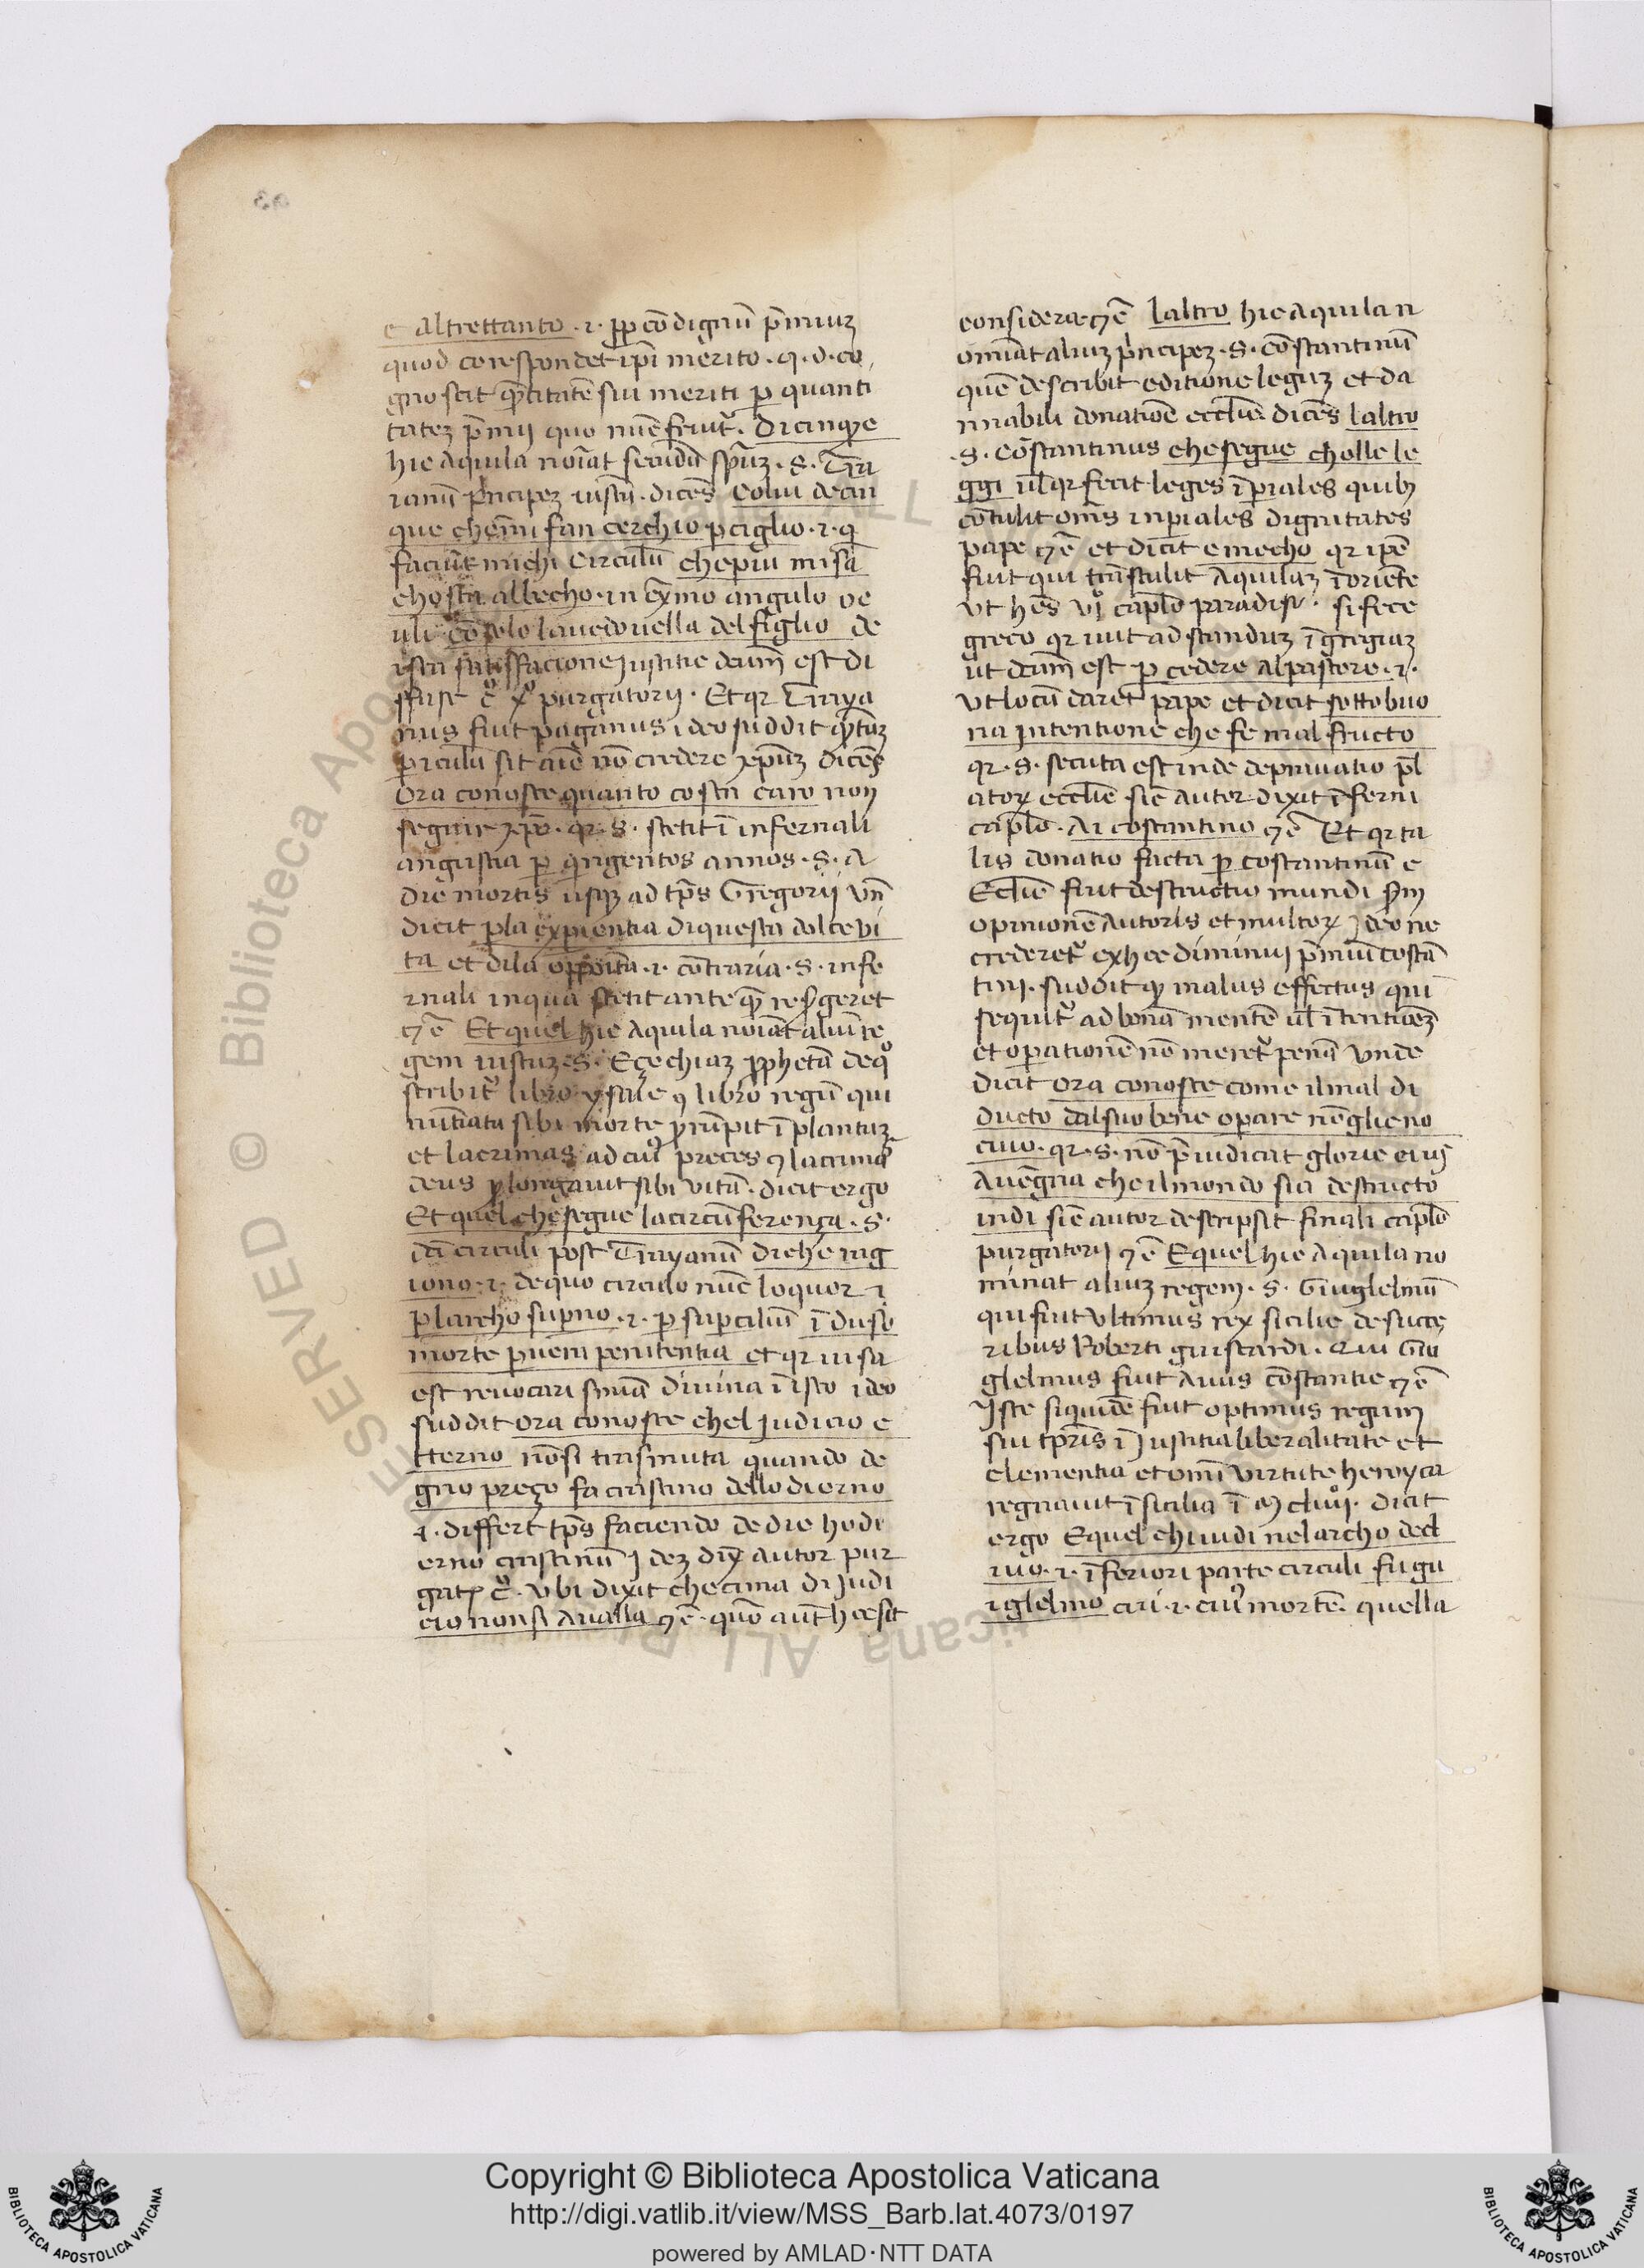 e altrettanto .i. ꝓp cōdignū p̄miuꝫ
quod corespondet ipī merito . q. d. co
gnoscit q̄titatē sui meriti ꝑ quanti
tateꝫ p̄mii quo nūc fruit᷑. Dicinque
hic aquila noīat secūdū spūꝫ . S. Tra
ianū pͥncipeꝫ iustū . dicēs Colui decin
que chemi fan cerchio ꝑ ciglio .i. q̇
faciūt michi circulū che piu misa
chosta albecho . in ex̄mo angulo oc
uli cōsolo la uedouella del figlio de
ista satisfacione justitie dc̄um est di
ffuse c̊ x̊ purgatorij . Et qr Traya
nus fuit paganus ideo subdit q̄tuꝫ
ꝑiculū sit aīe nō credere xpūꝫ dicēs
Ora conosce quanto costa caro non
seguir xpō . qr . S . stetit ī infernali
angustia ꝑ q̇ngentos annos . S . a
die mortis usqꝫ ad tp̄s Gregorij Vn̄
dicit ꝑla exꝑientia di questa dolce vi
ta et dila opposita .i. cōtraria . S . infe
rnali in qua stetit ante q̄ resurgeret
⁊c̄ Et quel hic aquila noīat aliū re
gem iustuꝫ . S . Eçechiaꝫ ꝓphetā de qͦ
scribit᷑ libro ysaie ⁊ libro regū qui
nūtiata sibi morte ꝓrūpit ī plantuꝫ
et lacrimas ad cuiꝰ preces ⁊ lacrimas
deus ꝓlongauit sibi vitā . dicit ergo
Et quel che segue la circūferença . S .
dc̄i circuli post Trayanū di che rag
iono .i. de quo circulo nūc loquor ⁊
ꝑ larcho suꝑno .i. ꝑ suꝑciliū īduso
morte ꝑ uera penitentia et qr uisa
est reuocari snīa diuina ī isto ideo
subdit ora conosce chel judicio e
tterno nōsi trasmuta quando de
gno preço fa crastino dellodierno
.i. differt tp̄s faciendo de die hodi
erno crastinū Ideꝫ dix̄ autor pur
gat c̊ . vbi dixit che cima di judi
cio non si aualla ⁊c̄ . quō aut̄ hoc sit
considera ⁊c̄ laltro hic aquila n
omīat aliuꝫ pͥncipeꝫ . S . Cōstantinū
quē describit editione leguꝫ et da
mnabili donatiōe ecclīe dicēs laltro
.S . Cōstantinus che segue cholle le
ggi ul̄ qr fecit leges īꝑiales quibꝫ
cōtulit oīns inꝑiales dignitates
pape ⁊c̄ et dicit e mecho qr ipē
fuit qui trāstulit aquilaꝫ ī oriēte
vt hēs vjͦ caplō paradisi . si fece
greco qr iuit ad standuꝫ ī greciaꝫ
ut dc̄um est ꝑ cedere al pastore .i.
vt locū daret pape et dicit sotto buo
na intentione che fe mal fructo
qr . S . secuta est inde deprauatio p̄l
atoꝝ ecclīe sic autor dixit īferni
caplō . Ai costantino ⁊c̄ Et qr ta
lis donatio facta ꝑ costantinū e
Eclīe fuit destructio mundi sm̄
opinionē autoris et multoꝝ Ideo ne
crederet᷑ ex hoc diminui p̄miū costā
tini . subdit ꝙ malus effectus qui
sequit᷑ ad bonā mentē ul̄ ītentiōeꝫ
et oꝑationē nō meret᷑ penā vnde
dicit ora conosce come il mal di
ducto dal suo bene oꝑare nō gli e no
ciuo . qr . S . nō p̄iudicat glorie eius
Auēgna che il mondo sia destructo
indi sic autor descripsit finali caplō
purgatorij ⁊c̄ E quel hic aquila no
minat aliuꝫ regem . S . Guiglelmū
qui fuit vltimus rex sicilie de succe
ribus Roberti guiscardi . Qui Gui
glelmus fuit auus cōstantie ⁊c̄
Iste siquidē fuit optimus regum
sui tp̄ris ī justitia liberalitate et
clementia et omī virtute heroyca
regnauit ī sicilia ī
dicit
ergo E quel chi uidi nel archo decl
iuo .i. īferiori parte circuli fu gu
iglelmo cui .i. cuiꝰ mortē quella
Copyright © Biblioteca Apostolica Vaticana
http://digi.vatlib.it/view/MSS_Barb.lat.4073/0197
powered by AMLAD·NTT DATA